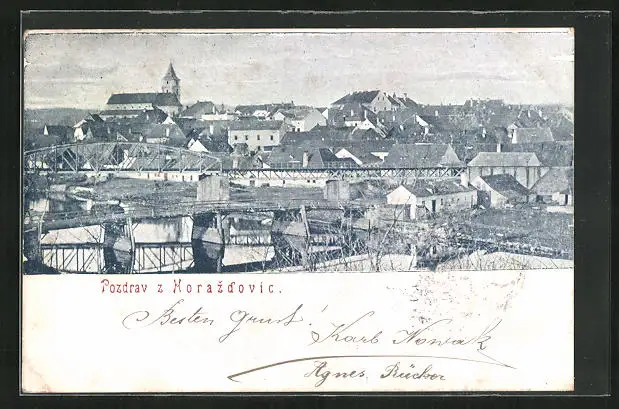 Pozdrav z Horažďovic.
Besten Gruss! Karl Nowak
Agnes